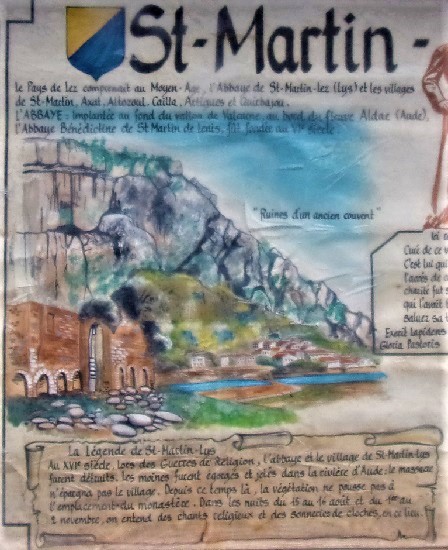 St-Martin-
Le Pays de Lez comprenait au Moyen-Age, l'Abbaye de St-Martin-lez (Lys) et les villages
de St-Martin, Axat, Attozoul, Cailla, Artigues et Quirbajou.
L'ABBAYE: Implantée au fond du vallon de Valcarne, au bord du fleuve Aldae (Aude),
l'Abbaye Bénédictine de St Martin de fut fondée au siècle.
"Ruines d'un ancien couvent"
Ici
Curé de ce v
C'est lui qui
l'accès de c
charité fut s
qui l'avait
saluez sa
Exacit lapidem
Gloria Pastoris
La Légende de St-Martin-Lys
Au XVIe siècle, lors des Guerres de Religion, l'abbaye et le village de St-Martin-Lys
furent détruits. Les moines furent égorgés et jetés dans la rivière d'Aude: le massacre
n'épargna pas le village. Depuis ce temps là, la végétation ne pousse pas à
l'emplacement du monastère. Dans les nuits du 15 au 16 août et du 1er au
2 novembre, on entend des chants religieux et des sonneries de cloches, en ce lieu.